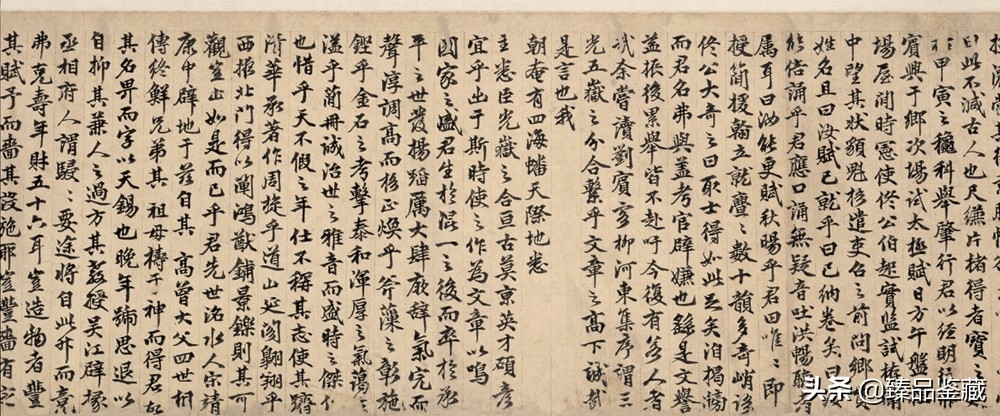 印此不減古人也尺縑片楮得者寶之
於甲寅之穐科舉肇行君以經明行
賓興于鄉次場試太極賦日方午盤
場屋閴時憲使佟公伯起實監試
中望其狀頯魁梧遣吏召之前問鄉
姓名且曰汝賦已就乎曰已納卷矣曰
能倍誦乎君應口誦無疑音吐洪暢聽
厲耳曰汝能更賦秋暘乎君曰唯〻即
授簡援翰立就亹〻數十韻多奇峭語
佟公大奇之曰取士得如此足矣洎揭榜
而君名弗與蓋考官辟嫌也繇是文譽
益振後累舉皆不赴吁今復有若人者
哉余嘗讀劉賓客柳河東集序謂三
光五嶽之分合繫乎文章之高下誠哉
是言也我
朝奄有四海蟠天際地悉
主悉臣光嶽之合亘古莫京英才碩彥
宜乎出于斯時使之作為文章以鳴
國家之盛君生於混一之後而卒於承
平之世發揚蹈厲大肆厥辭氣完而
聲淳調高而格正煥乎斧藻之彰施
鏗乎金石之考擊泰和渾厚之氣藹
溢乎簡冊誠治世之雅音而盛時之傑
也惜乎天不假之年仕不稱其志使其躋
清華承著作周旋乎道山延閣翱翔乎
西掖北門得以闡鴻猷鋪景鑠則其可
觀豈止如是而已乎君先世洺水人宋靖
康中辟地于茲自其高曾大父四世
傳終鮮兄弟其祖母禱于神而得君故
其名畀而字以天錫也晚年號思退以
自抑其兼人之過方其發吳江辟掾
丞相府人謂駸〻要途將自此升而竟
弗克壽年財五十六耳豈造物者豐
其賦予而嗇其設施耶豈豐嗇有之
头条@臻品鉴藏